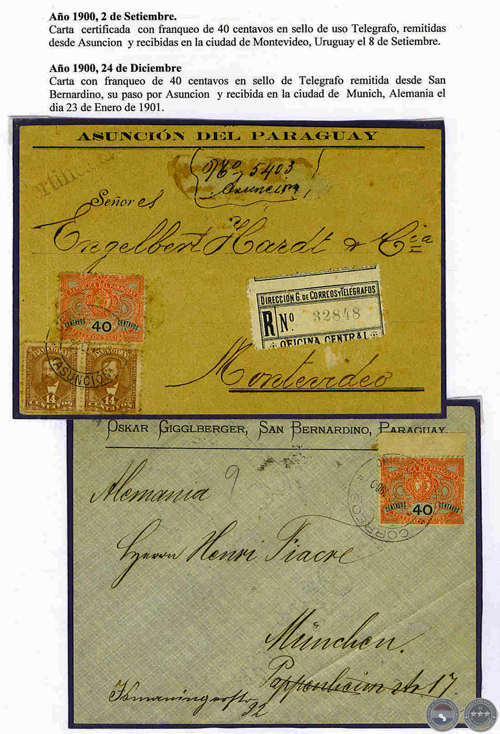 Año 1900, 2 de Setiembre.
Carta certificada con franqueo de 40 centavos en sello de uso Telegrafo, remitidas
desde Asuncion y recibidas en la ciudad de Montevideo, Uruguay el 8 de Setiembre.
Año 1900, 24 de Diciembre
Carta con franqueo de 40 centavos en sello de Telegrafo remitida desde San
Bernardino, su paso por Asuncion y recibida en la ciudad de Munich, Alemania el
dia 23 de Enero de 1901.
ASUNCIÓN DEL PARAGUAY
Nº 5403
Asuncion
Señor es
Engelbert Hardt & Cia
DIRECCIÓN G. DE CORREOS Y TELÉGRAFOS
R Nº 32848
OFICINA CENTRAL
CENTAVOS 40 CENTAVOS
PARAGUAY PARAGUAY
ASUNCION
14 14
CENTAVOS CENTAVOS
Montevideo
OSKAR GIGGLBERGER, SAN BERNARDINO, PARAGUAY.
9
CENTAVOS 40 CENTAVOS
CORREOS
Alemania
Herrn Henri Fiacre
München.
Pappenheim str 17.
Ismaningerstr
92